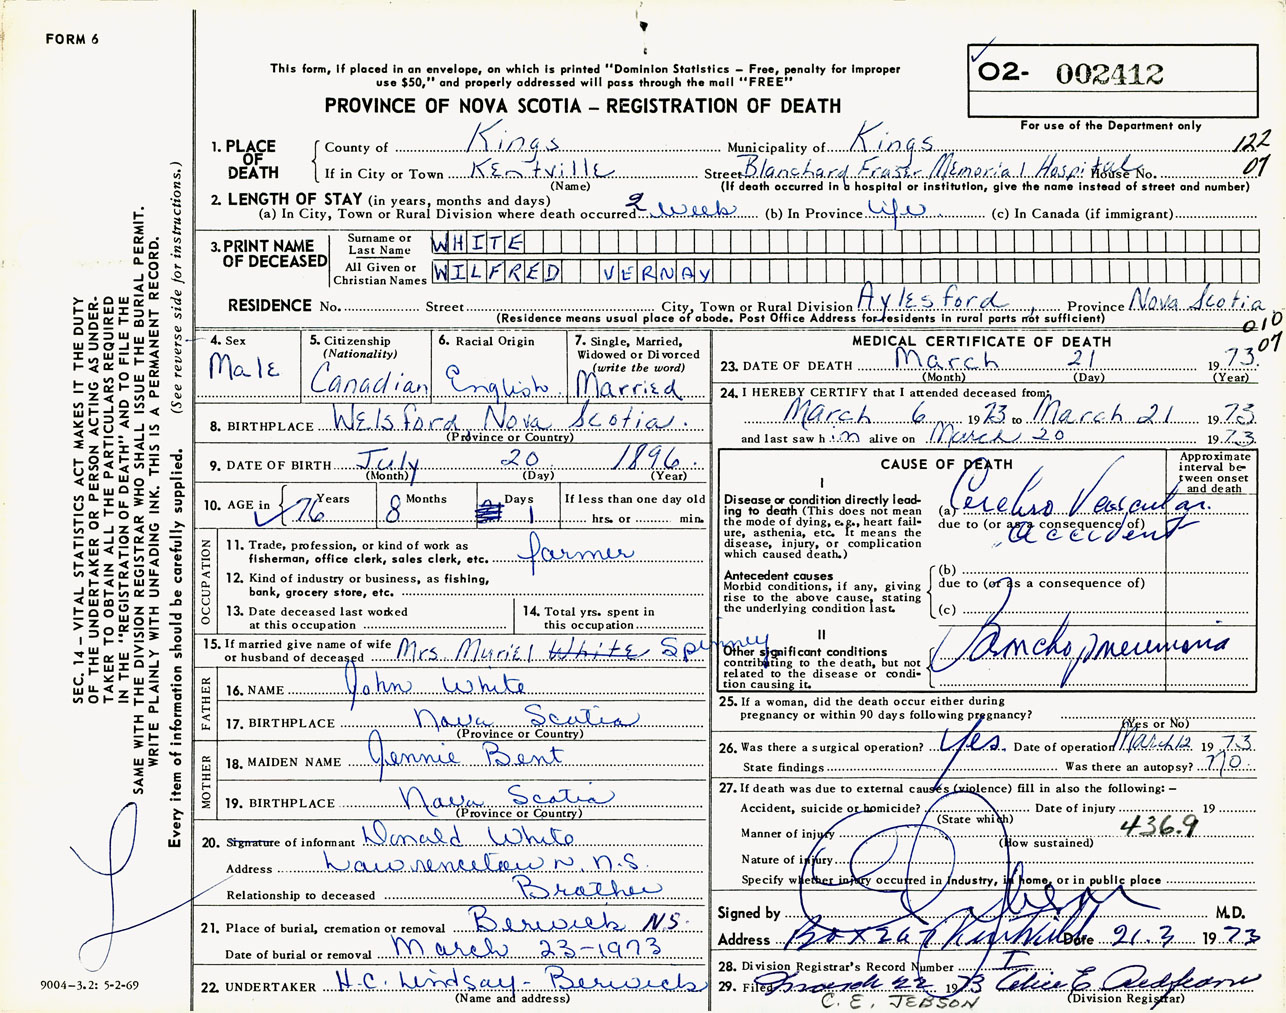 FORM 6
This form, if placed in an envelope, on which is printed "Dominion Statistics – Free, penalty for improper
use $50," and properly addressed will pass through the mail "FREE"
PROVINCE OF NOVA SCOTIA – REGISTRATION OF DEATH
O2- 002412
For use of the Department only
122
07
1. PLACE OF DEATH
County of Kings Municipality of Kings
If in City or Town Kentville Street Blanchard Fraser Memorial Hospital House No.
(Name) (If death occurred in a hospital or institution, give the name instead of street and number)
2. LENGTH OF STAY (in years, months and days)
(a) In City, Town or Rural Division where death occurred 2 week (b) In Province life (c) In Canada (if immigrant)
3. PRINT NAME OF DECEASED
Surname or Last Name WHITE
All Given or Christian Names WILFRED VERNAY
RESIDENCE No. Street City, Town or Rural Division Aylesford, Province Nova Scotia
(Residence means usual place of abode. Post Office Address for residents in rural parts not sufficient)
010
07
4. Sex Male
5. Citizenship (Nationality) Canadian
6. Racial Origin English
7. Single, Married, Widowed or Divorced (write the word) Married
8. BIRTHPLACE Welsford Nova Scotia.
(Province or Country)
9. DATE OF BIRTH July 20 1896
(Month) (Day) (Year)
10. AGE in 76 Years 8 Months 1 Days If less than one day old
hrs. or min.
OCCUPATION
11. Trade, profession, or kind of work as
fisherman, office clerk, sales clerk, etc. farmer
12. Kind of industry or business, as fishing,
bank, grocery store, etc.
13. Date deceased last worked
at this occupation
14. Total yrs. spent in
this occupation
15. If married give name of wife
or husband of deceased Mrs. Muriel White Spinney
FATHER
16. NAME John White
17. BIRTHPLACE Nova Scotia
(Province or Country)
MOTHER
18. MAIDEN NAME Jennie Bent
19. BIRTHPLACE Nova Scotia
(Province or Country)
20. Signature of informant Donald White
Address Lawrencetown N.S.
Relationship to deceased Brother
21. Place of burial, cremation or removal Berwick NS
Date of burial or removal March 23-1973
22. UNDERTAKER H.C. Lindsay - Berwick
(Name and address)
MEDICAL CERTIFICATE OF DEATH
23. DATE OF DEATH March 21 1973
(Month) (Day) (Year)
24. I HEREBY CERTIFY that I attended deceased from
March 6 1973 to March 21 1973
and last saw him alive on March 20 1973
CAUSE OF DEATH
Approximate interval between onset and death
I
Disease or condition directly leading to death (This does not mean
the mode of dying, e.g., heart failure, asthenia, etc. It means the
disease, injury, or complication
which caused death.)
(a) Cerebro Vascular
due to (or as a consequence of)
accident
Antecedent causes
Morbid conditions, if any, giving
rise to the above cause, stating
the underlying condition last.
(b)
due to (or as a consequence of)
(c)
II
Other significant conditions
contributing to the death, but not
related to the disease or condition causing it.
Broncho pneumonia
25. If a woman, did the death occur either during
pregnancy or within 90 days following pregnancy?
(Yes or No)
26. Was there a surgical operation? Yes. Date of operation March 12 1973
State findings Was there an autopsy? No.
27. If death was due to external causes (violence) fill in also the following: –
Accident, suicide or homicide? Date of injury 19
(State which)
Manner of injury 436.9
(How sustained)
Nature of injury
Specify whether injury occurred in industry, in home, or in public place
Signed by M.D.
Address Box Kentville Date 21.3 1973
28. Division Registrar's Record Number
29. Filed March 22 1973 Alice E
(Division Registrar)
C. E. JEBSON
SEC. 14 – VITAL STATISTICS ACT MAKES IT THE DUTY
OF THE UNDERTAKER OR PERSON ACTING AS UNDER-
TAKER TO OBTAIN ALL THE PARTICULARS REQUIRED
IN THE "REGISTRATION OF DEATH" AND TO FILE THE
SAME WITH THE DIVISION REGISTRAR WHO SHALL ISSUE THE BURIAL PERMIT.
WRITE PLAINLY WITH UNFADING INK. THIS IS A PERMANENT RECORD.
Every item of information should be carefully supplied. (See reverse side for instructions.)
9004-3.2: 5-2-69